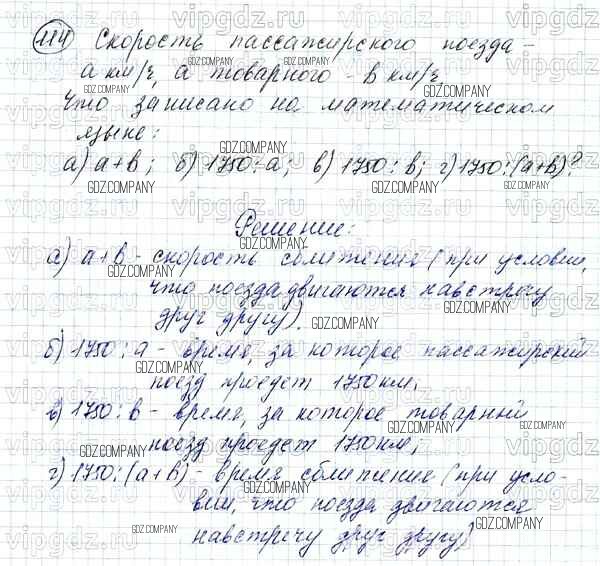 114 Скорость пассажирского поезда -
а км/ч, а товарного - в км/ч.
Что записано на математическом
языке:
а) а+в; б) 1750:а; в) 1750:в; г) 1750:(а+в)?
Решение:
а) а+в - скорость сближения (при условии,
что поезда двигаются навстречу
друг другу).
б) 1750:а - время, за которое пассажирский
поезд проедет 1750км;
в) 1750:в - время, за которое товарный
поезд проедет 1750км;
г) 1750:(а+в) - время сближение (при усло-
вии, что поезда двигаются
навстречу друг другу)